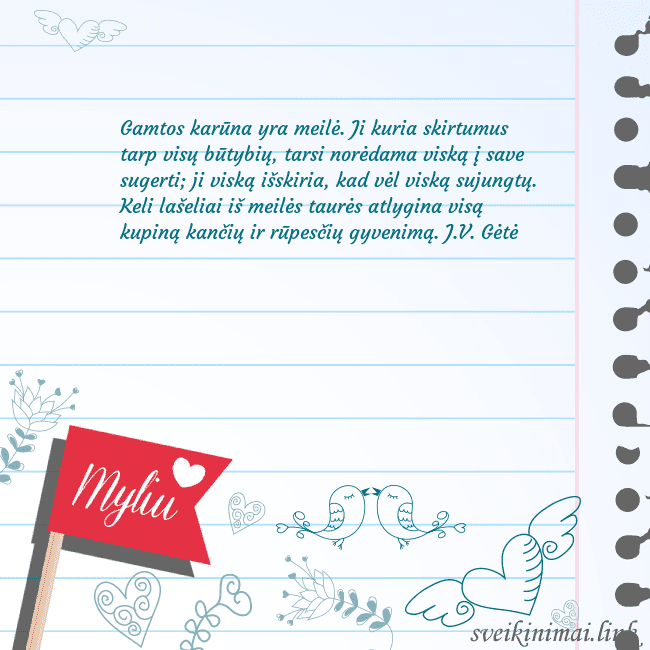 Gamtos karūna yra meilė. Ji kuria skirtumus
tarp visų būtybių, tarsi norėdama viską į save
sugerti; ji viską išskiria, kad vėl viską sujungtų.
Keli lašeliai iš meilės taurės atlygina visą
kupiną kančių ir rūpesčių gyvenimą. J.V. Gėtė
Myliu
sveikinimai.link